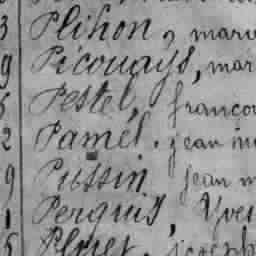 3 Plihon, marie
9 Picouays, mar
5 Pestel, francoi
2 Pamel. jean ma
9 Pussin jean m
1 Perquis, Yves
5 Pluet, joseph